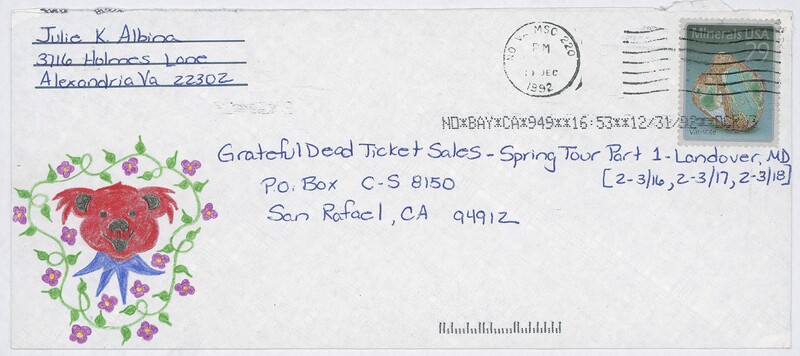 Julie K. Albina
3716 Holmes Lane
Alexandria Va 22302
NO. VA MSC 220
PM
DEC
1992
Minerals USA
29
Variscite
NO*BAY*CA*949**16:53**12/31/92**
Grateful Dead Ticket Sales - Spring Tour Part 1 - Landover, MD
[2-3/16, 2-3/17, 2-3/18]
P.O. Box C-S 8150
San Rafael, CA 94912